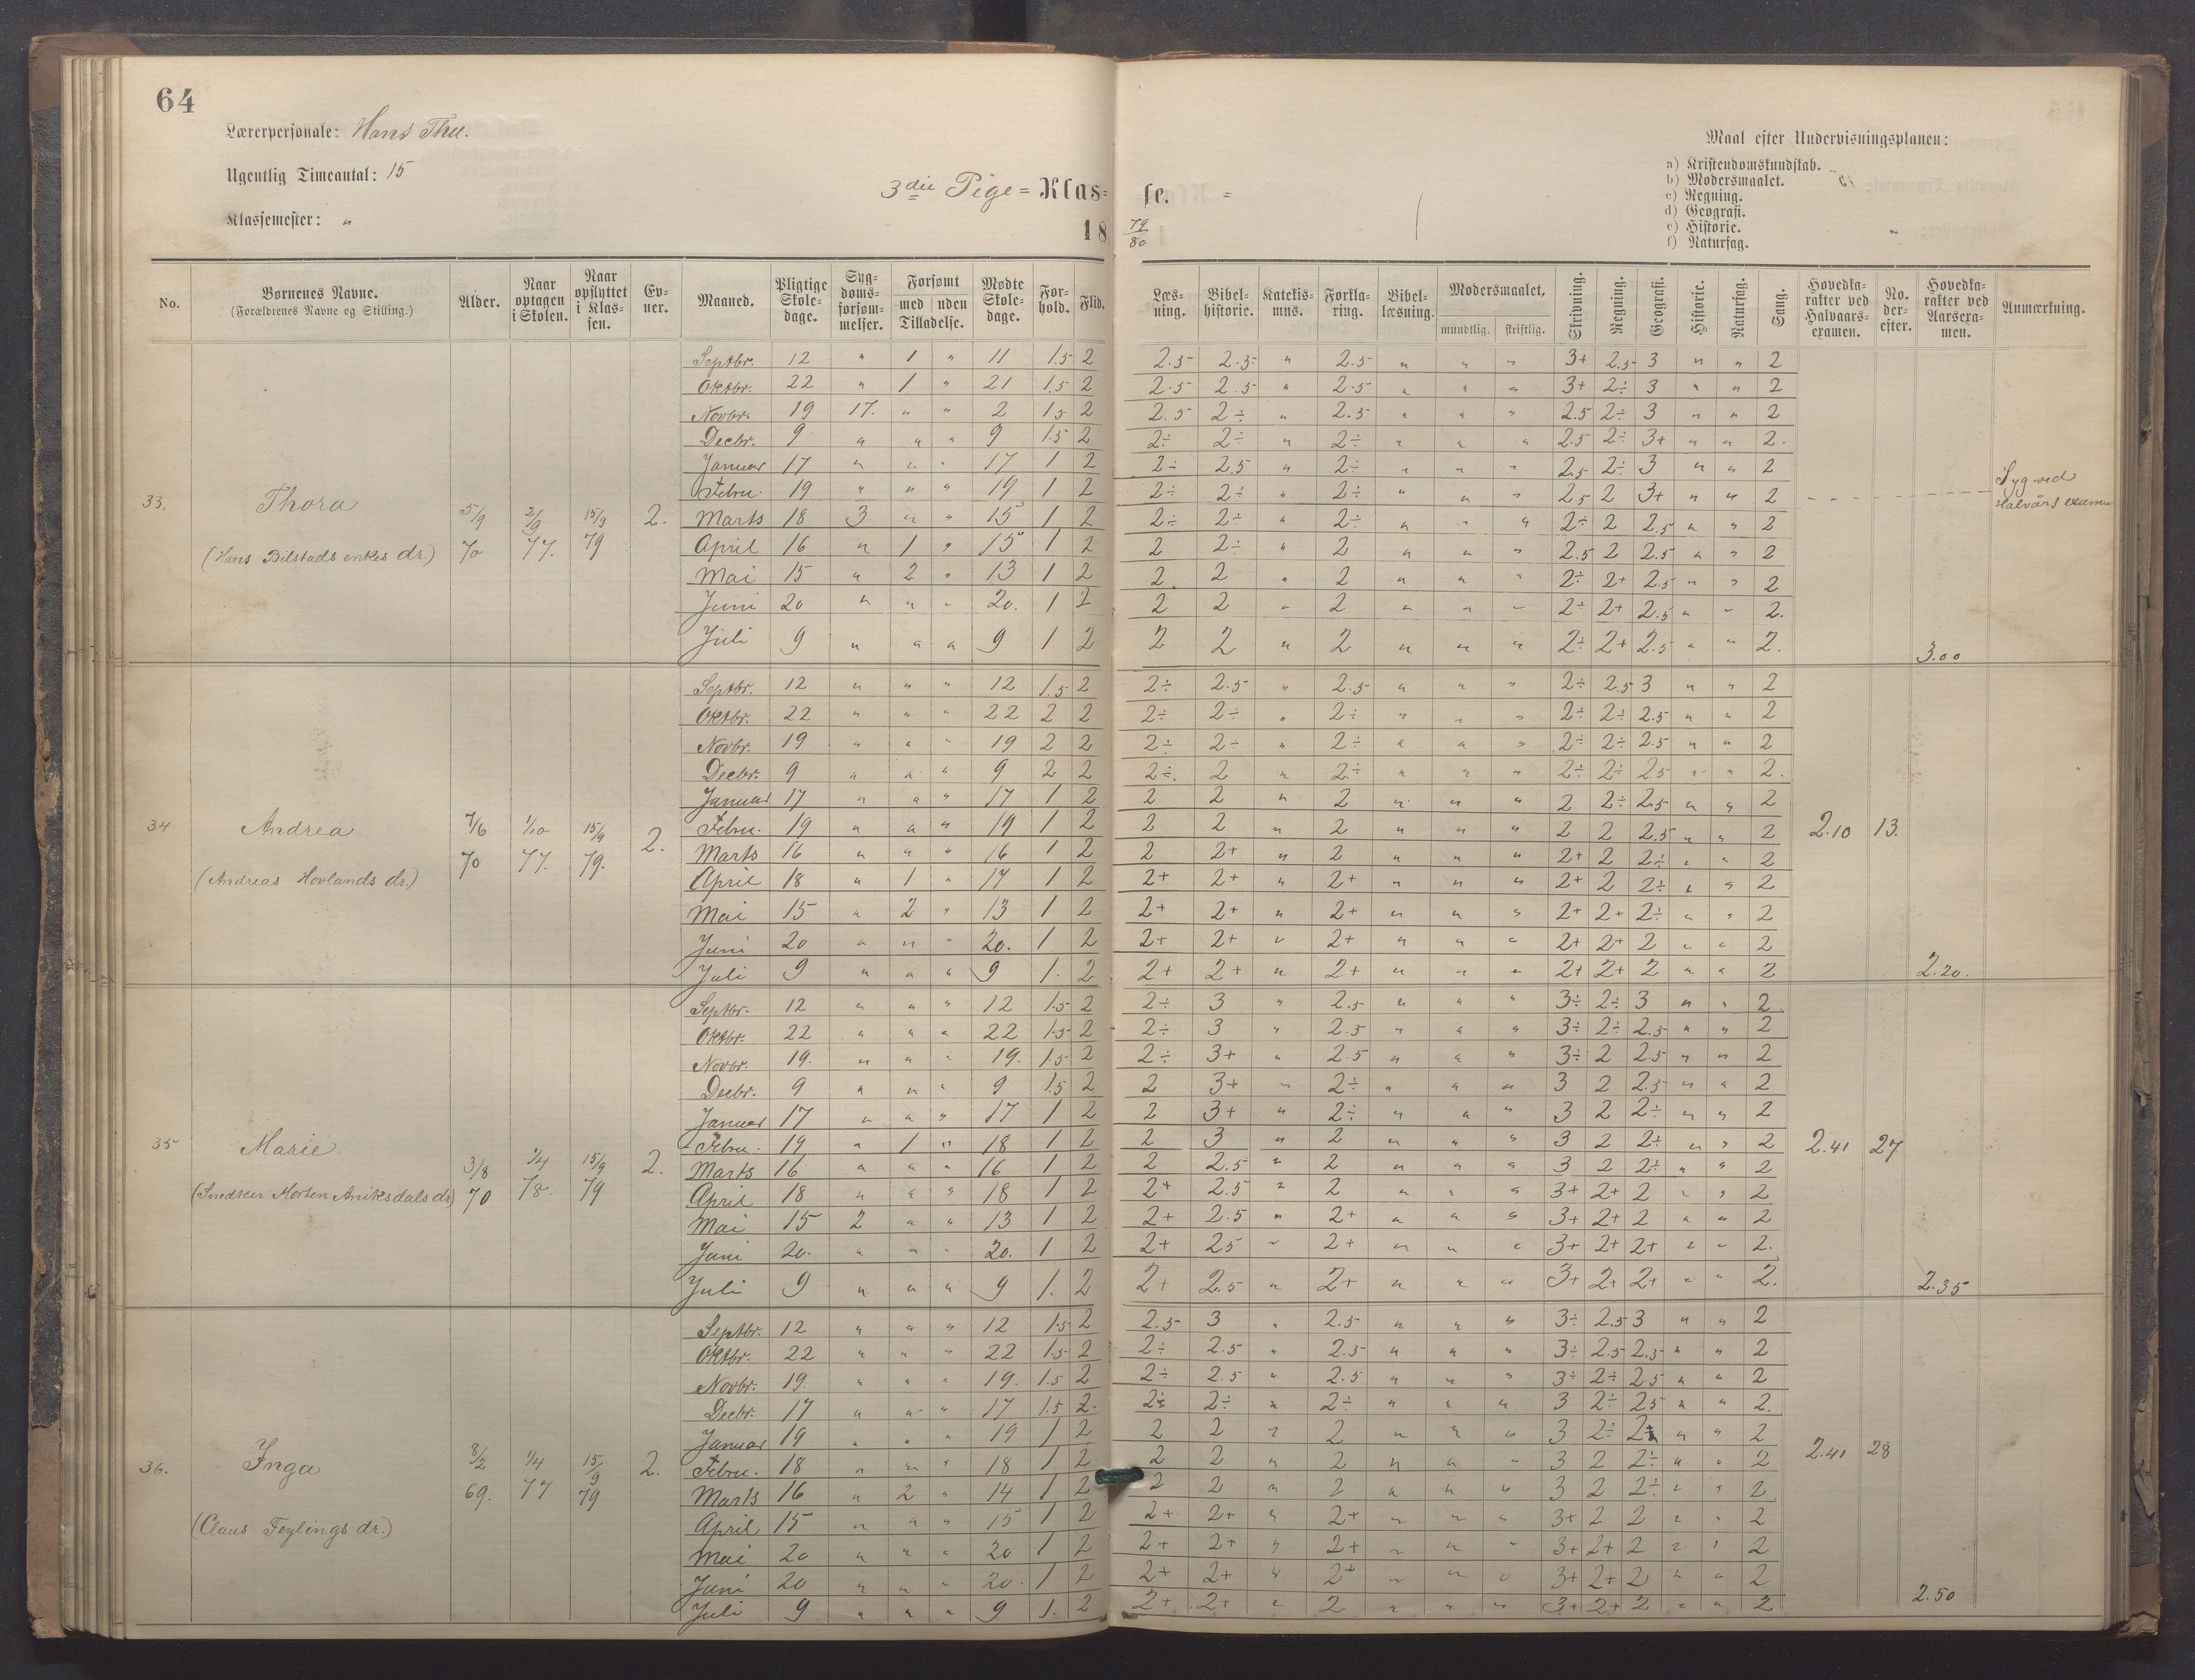 64
Lærerpersonale: Hans Thu.
Ugentlig Timeantal: 15
Klassemester: "
3die Pige = Klas=
se. =
18
79/80
Maal efter Undervisningsplanen:
a) Kristendomskundskab.
b) Modersmaalet.
c) Regning.
d) Geografi.
e) Historie.
f) Naturfag.
No. | Børnenes Navne. (Forældrenes Navne og Stilling.) | Alder. | Naar optagen i Skolen. | Naar opflyttet i Klassen. | Evner. | Maaned. | Pligtige Skoledage. | Sygdomsforsømmelser. | Forsømt med uden Tilladelse. | Mødte Skoledage. | Forhold. | Flid. | Læsning. | Bibelhistorie. | Katekismus. | Forklaring. | Bibellæsning. | Modersmaalet, mundtlig. skriftlig. | Skrivning. | Regning. | Geografi. | Historie. | Naturfag. | Sang. | Hovedkarakter ved Halvaarsexamen. | No. derefter. | Hovedkarakter ved Aarsexamen. | Anmærkning.
33. Thora (Hans Bilstads enkes dr.) 5/9 70 2/9 77. 15/9 79 2.
Septbr. 12 " 1 " 11 1.5 2 2.5 2.5 " 2.5 " " " 3+ 2.5 3 " " 2
Oktbr. 22 " 1 " 21 1.5 2 2.5 2.5 " 2.5 " " " 3+ 2÷ 3 " " 2
Novbr. 19 17. " " 2 1.5 2 2.5 2÷ " 2.5 " " " 2.5 2÷ 3 " " 2
Decbr. 9 " " " 9 1.5 2 2÷ 2÷ " 2÷ " " " 2.5 2÷ 3+ " " 2.
Januar 17 " " " 17 1 2 2÷ 2.5 " 2÷ " " " 2.5 2÷ 3 " " 2
Febru. 19 " " " 19 1 2 2÷ 2÷ " 2÷ " " " 2.5 2 3+ " " 2
Marts 18 3 " " 15 1 2 2÷ 2÷ " 2÷ " " " 2÷ 2 2.5 " " 2
April 16 " 1 " 15 1 2 2 2÷ " 2 " " " 2.5 2 2.5 " " 2
Mai 15 " 2 " 13 1 2 2 2 " 2 " " " 2÷ 2+ 2.5 " " 2
Juni 20 " " " 20. 1 2 2 2 " 2 " " " 2÷ 2+ 2.5 " " 2.
Juli 9 " " " 9 1 2 2 2 " 2 " " " 2÷ 2+ 2.5 " " 2. 3.00
Syg ved Halvårs examen
34 Andrea (Andreas Hovlands dr.) 7/6 70 1/10 77. 15/9 79. 2. 2.10 13.
Septbr. 12 " " " 12 1.5 2 2÷ 2.5 " 2.5 " " " 2÷ 2.5 3 " " 2
Oktbr. 22 " " " 22 2 2 2÷ 2÷ " 2÷ " " " 2÷ 2÷ 2.5 " " 2
Novbr. 19 " " " 19 2 2 2÷ 2÷ " 2÷ " " " 2÷ 2÷ 2.5 " " 2
Decbr. 9 " " " 9 2 2 2÷. 2 " 2÷ " " " 2÷ 2÷ 2.5 " " 2.
Januar 17 " " " 17 1 2 2 2 " 2 " " " 2 2÷ 2.5 " " 2
Febru. 19 " " " 19 1 2 2 2 " 2 " " " 2 2 2.5 " " 2
Marts 16 " " " 16 1 2 2 2+ " 2 " " " 2+ 2 2÷ " " 2
April 18 " 1 " 17 1 2 2+ 2+ " 2+ " " " 2+ 2 2÷ " " 2
Mai 15 " 2 " 13 1 2 2+ 2+ " 2+ " " " 2+ 2+ 2÷ " " 2
Juni 20 " " " 20. 1 2 2+ 2+ " 2+ " " " 2+ 2+ 2 " " 2
Juli 9 " " " 9 1. 2 2+ 2+ " 2+ " " " 2+ 2+ 2 " " 2 2.20.
35 Marie (Snedker Morten Aniksdals dr) 3/8 70 2/4 78. 15/9 79 2. 2.41 27
Septbr. 12 " " " 12 1.5 2 2÷ 3 " 2.5 " " " 3÷ 2÷ 3 " " 2
Oktbr. 22 " " " 22 1.5 2 2÷ 3 " 2.5 " " " 3÷ 2÷ 2.5 " " 2
Novbr. 19. " " " 19. 1.5 2 2÷ 3+ " 2.5 " " " 3÷ 2 2.5 " " 2
Decbr. 9 " " " 9 1.5 2 2 3+ " 2÷ " " " 3 2 2.5 " " 2
Januar 17 " " " 17 1 2 2 3+ " 2÷ " " " 3 2 2÷ " " 2
Febru. 19 " 1 " 18 1 2 2 3 " 2 " " " 3 2 2÷ " " 2
Marts 16 " " " 16 1 2 2 2.5 " 2 " " " 3 2 2÷ " " 2
April 18 " " " 18 1 2 2+ 2.5 " 2 " " " 3+ 2+ 2 " " 2
Mai 15 2 " " 13 1 2 2+ 2.5 " 2+ " " " 3+ 2+ 2 " " 2
Juni 20. " " " 20. 1 2 2+ 25 " 2+ " " " 3+ 2+ 2+ " " 2.
Juli 9 " " " 9 1. 2 2+ 2.5 " 2+ " " " 3+ 2+ 2+ " " 2. 2.35
36. Inga (Claus Feylings dr.) 8/2 69. 1/4 77 15/9 79 2. 2.41 28
Septbr. 12 " " " 12 1.5 2 2.5 3 " 2.5 " " " 3÷ 2.5 3 " " 2
Oktbr. 22 " " " 22 1.5 2 2÷ 2.5 " 2.5 " " " 3÷ 2.5 2.5 " " 2
Novbr. 19. " " " 19. 1.5 2 2÷ 2.5 " 2.5 " " " 3÷ 2÷ 2.5 " " 2
Decbr. 17 " " " 17 1.5 2. 2÷ 2÷ " 2÷ " " " 3 2÷ 25 " " 2.
Januar 19 " " " 19 1 2 2 2 " 2 " " " 3 2÷ 2÷ " " 2
Febru. 18 " " " 18 1 2 2 2 " 2 " " " 3 2 2÷ " " 2
Marts 16 " 2 " 14 1 2 2 2 " 2 " " " 3 2 2÷ " " 2
April 15 " " " 15 1 2 2+ 2+ " 2+ " " " 3+ 2 2 " " 2
Mai 20 " " " 20 1 2 2+ 2+ " 2+ " " " 3+ 2+ 2 " " 2
Juni 20 " " " 20. 1 2 2+ 2+ " 2+ " " " 3+ 2+ 2 " " 2
Juli 9 " " " 9 1. 2 2+ 2+ " 2 " " " 3+ 2+ 2 " " 2 2.50